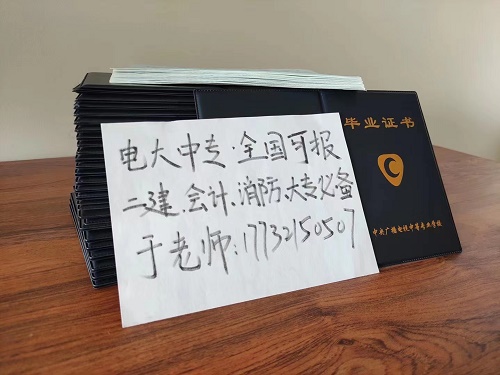 电大中专·全国可报
二建、会计、消防、大专必备
于老师:17732150507
毕业证书
中央广播电视中等专业学校